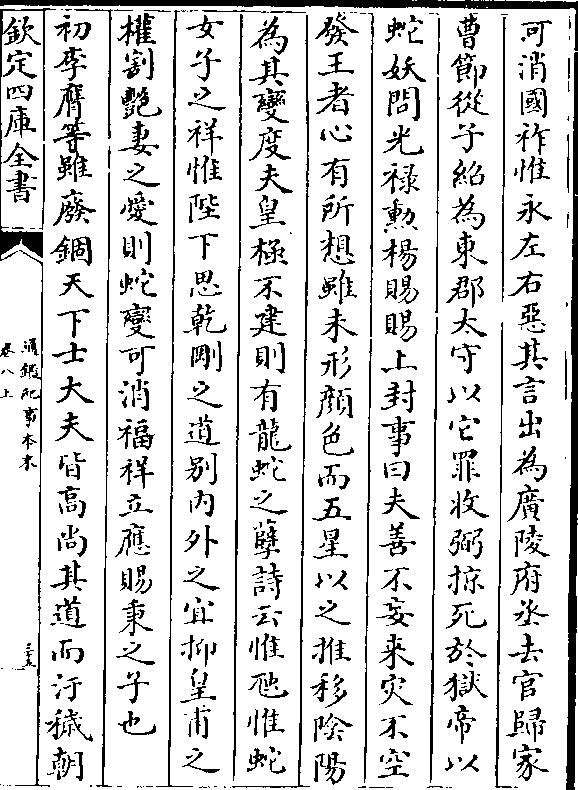 可消國祚惟永左右惡其言出為廣陵府丞去官歸家
曹節從子紹為東郡太守以它罪收弼掠死於獄帝以
蛇妖問光禄勲楊賜賜上封事曰夫善不妄来災不空
發王者心有所想雖未形顔色而五星以之推移陰陽
為其變度夫皇極不建則有龍蛇之孽詩云惟虺惟蛇
女子之祥惟陛下思乾剛之道别内外之宜抑皇甫之
權割艶妻之愛則蛇變可消禎祥立應賜秉之子也
初李膺等雖廢錮天下士大夫皆髙尚其道而汙穢朝
欽定四庫全書
通鑑紀事本末
卷八上
三十五